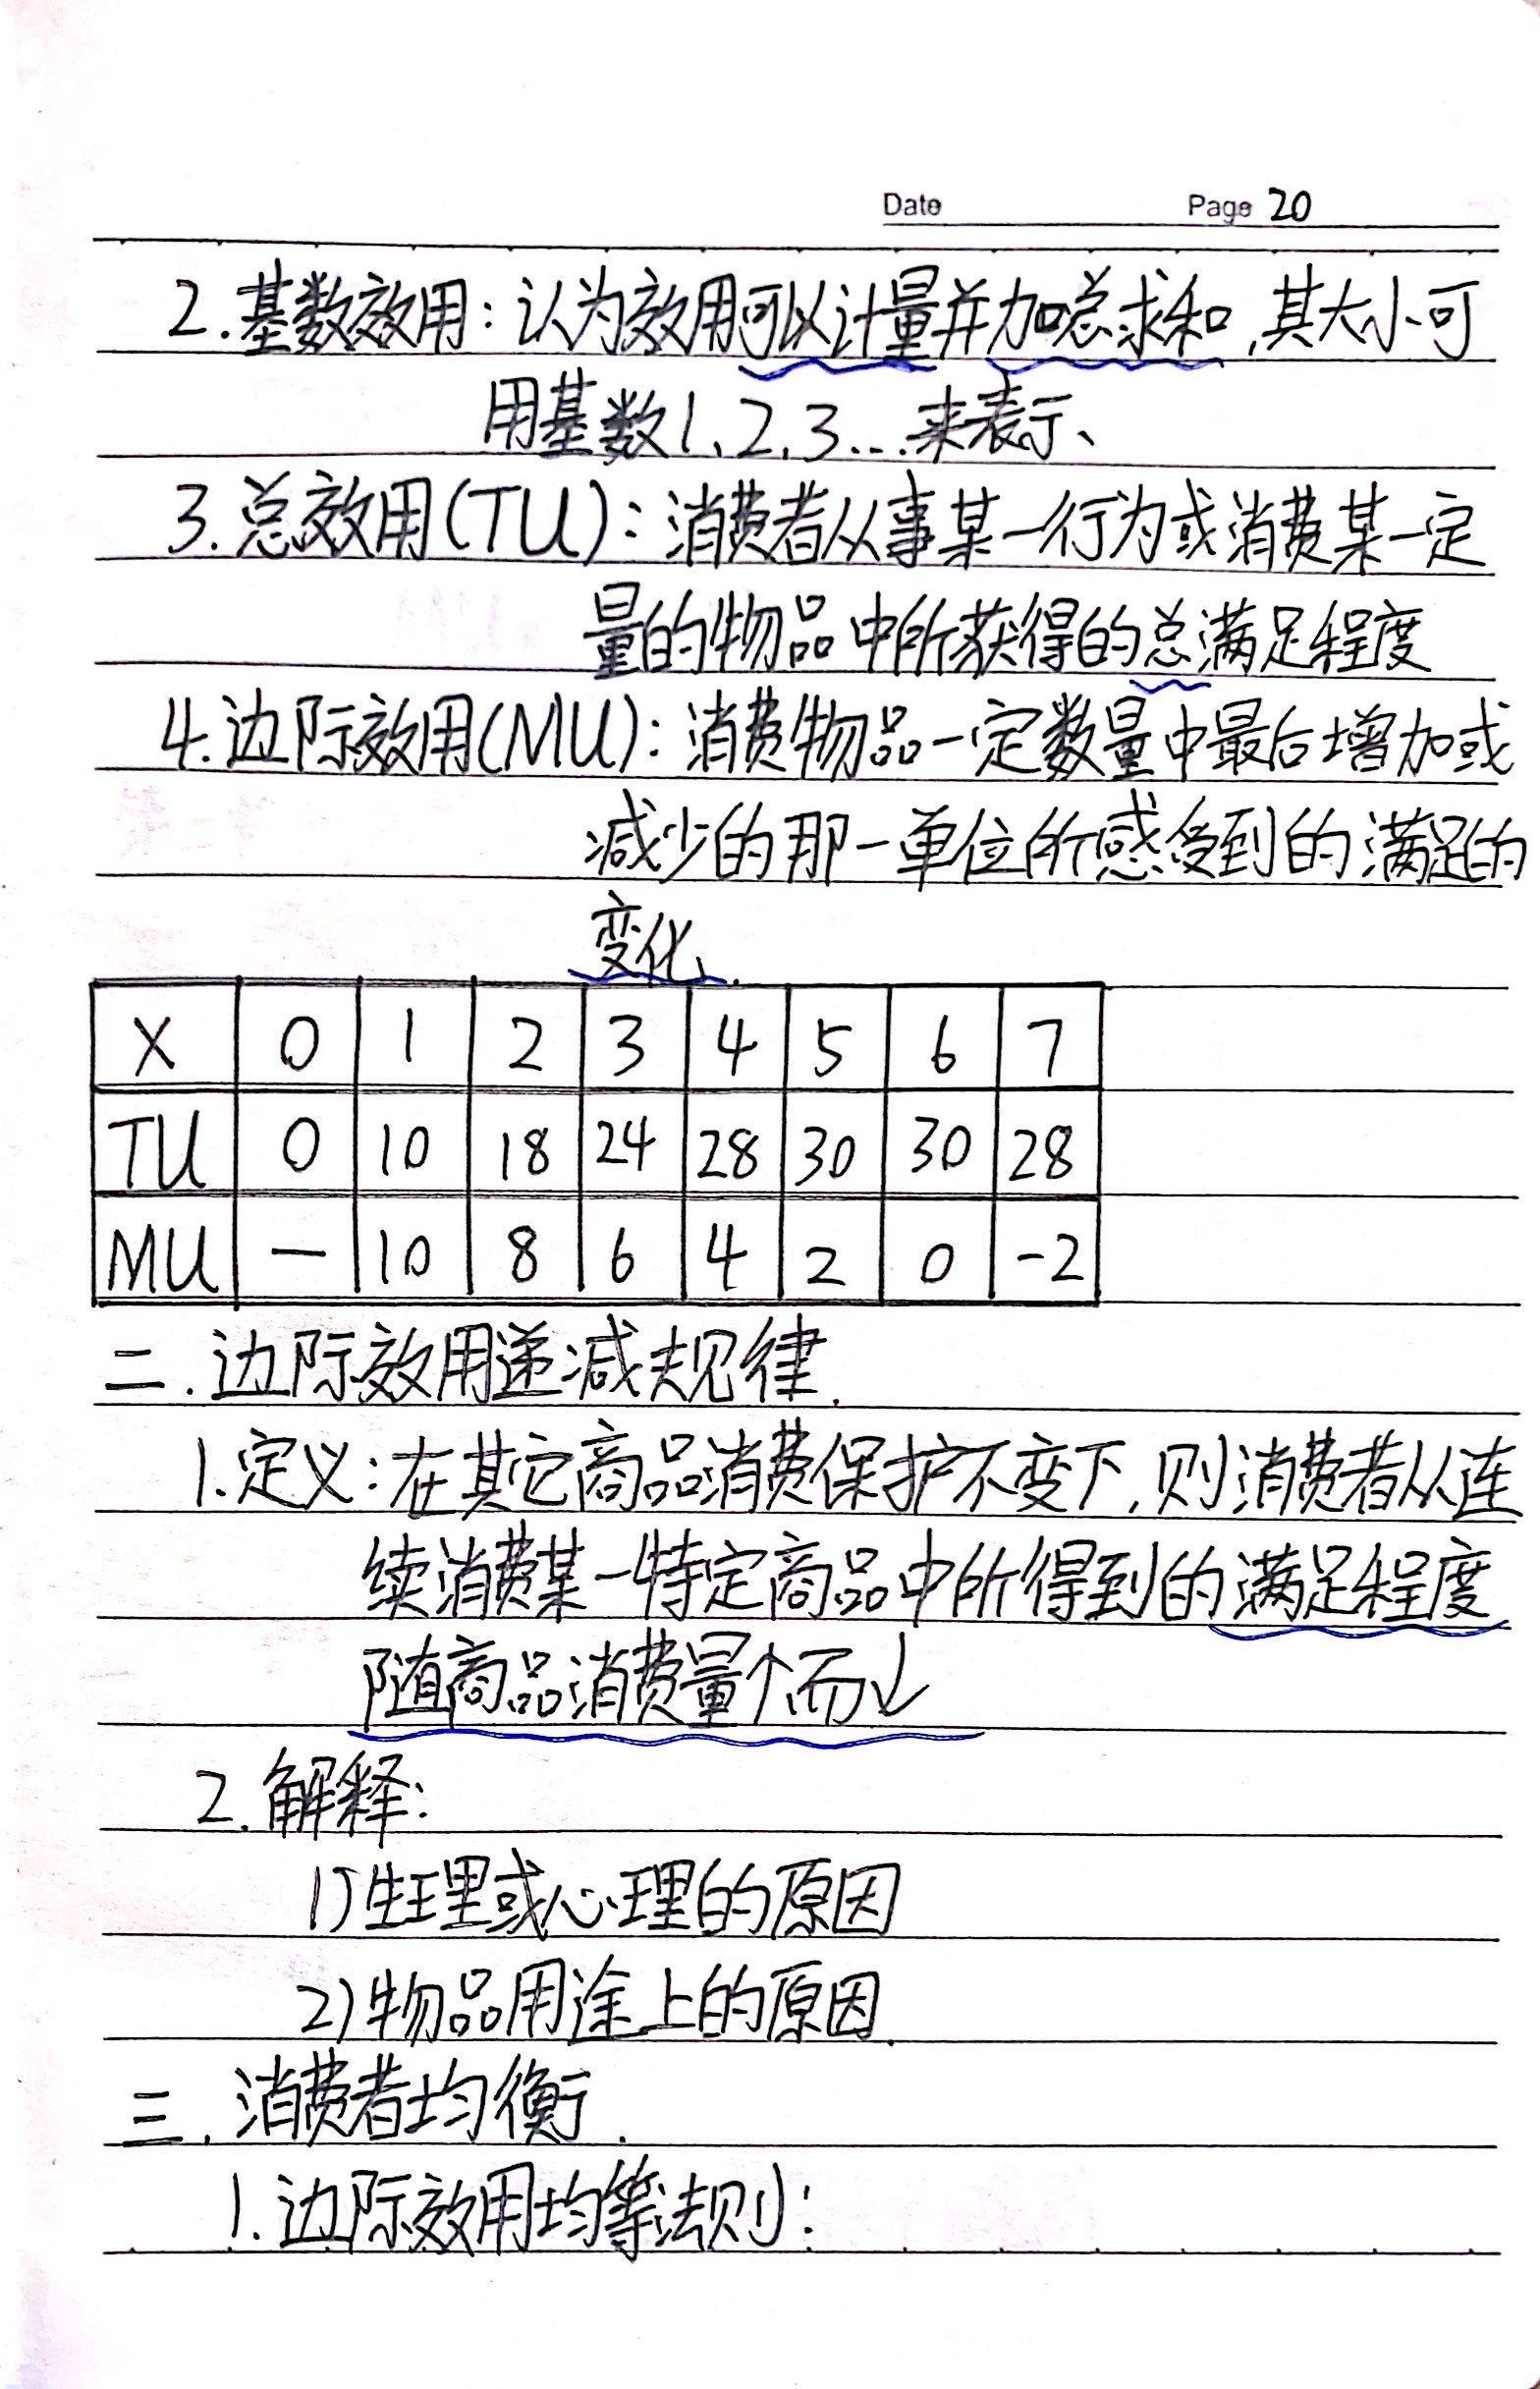 Date Page 20
2.基数效用：认为效用可以计量并加总求和,其大小可
用基数1、2、3...来表示、
3.总效用(TU)：消费者从事某一行为或消费某一定
量的物品中所获得的总满足程度
4.边际效用(MU)：消费物品一定数量中最后增加或
减少的那一单位所感受到的满足的
变化.
X 0 1 2 3 4 5 6 7
TU 0 10 18 24 28 30 30 28
MU — 10 8 6 4 2 0 -2
二.边际效用递减规律.
1.定义：在其它商品消费保护不变下,则消费者从连
续消费某一特定商品中所得到的满足程度
随商品消费量↑而↓
2.解释：
1)生理或心理的原因
2)物品用途上的原因.
三.消费者均衡.
1.边际效用均等法则：